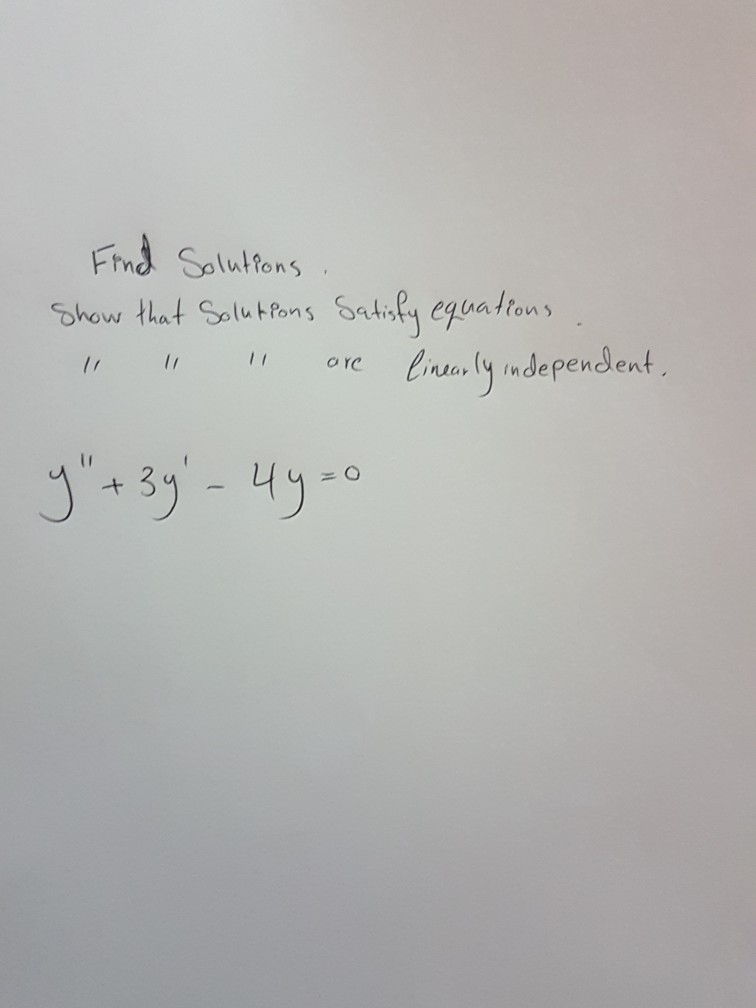 Find Solutions.
Show that Solutions Satisfy equations.
" " " are linearly independent.
y" + 3y' - 4y = 0